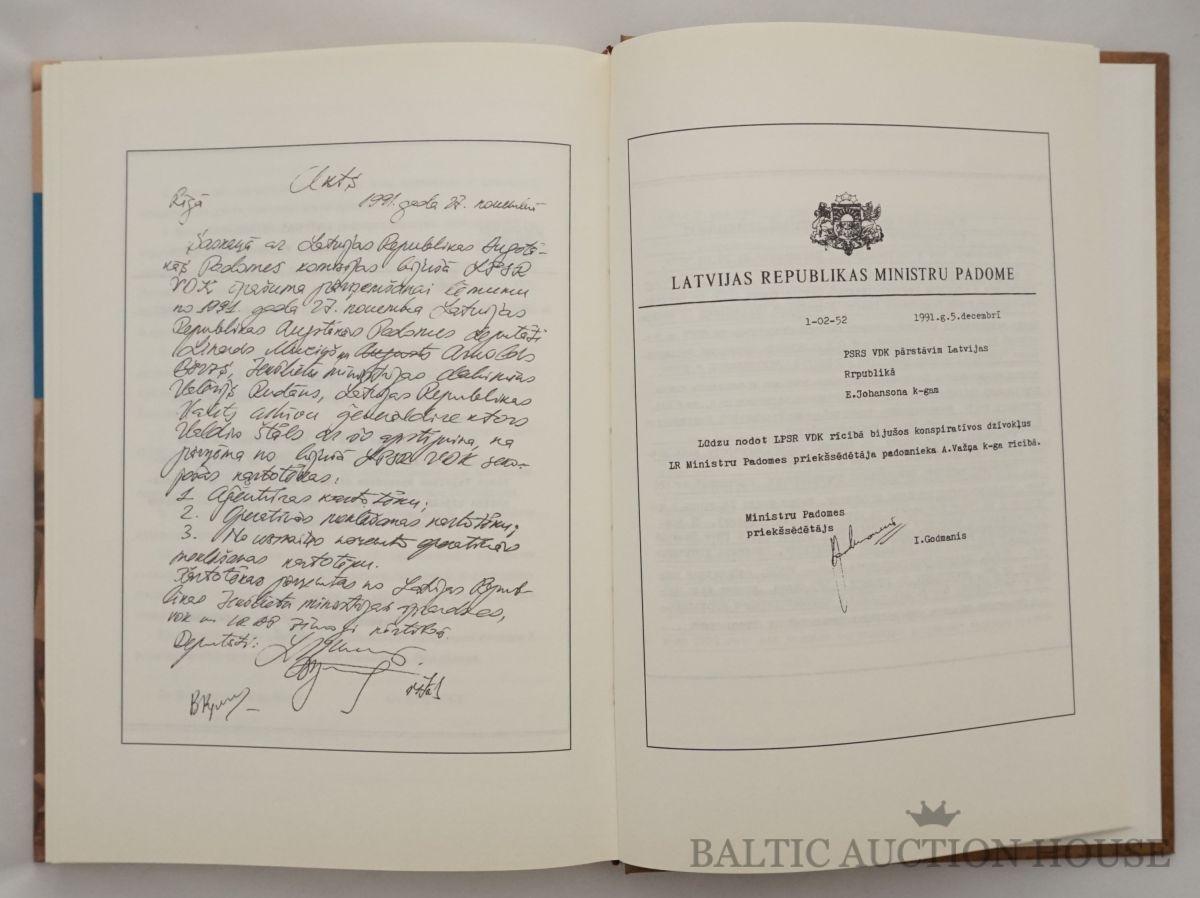 Akts
Rīgā 1991. gada 27. novembrī
Saskaņā ar Latvijas Republikas Augstā-
kās Padomes komisijas bijušā LPSR
VDK īpašuma pārņemšanai lēmumu
no 1991. gada 27. novembra Latvijas
Republikas Augstākās Padomes deputāti
Linards Muciņš un Augusts Arnolds
Bērzs, Iekšlietu ministrijas
Valērijs Rudāns, Latvijas Republikas
Valsts arhīvu ģenerāldirektors
Valdis Štāls ar šo apstiprina, ka
pārņēma no bijušā LPSR VDK
kartotēkas:
1. Aģentūras kartotēku;
2. Operatīvās meklēšanas kartotēku;
3. No operatīvās
meklēšanas kartotēku.
Kartotēkas paņemtas no Latvijas Repub-
likas Iekšlietu ministrijas
VDK un LR AP
Deputāti:
LATVIJAS REPUBLIKAS MINISTRU PADOME
1-02-52 1991.g.5.decembrī
PSRS VDK pārstāvim Latvijas
Rrpublikā
E.Johansona k-gam
Lūdzu nodot LPSR VDK rīcībā bijušos konspiratīvos dzīvokļus
LR Ministru Padomes priekšsēdētāja padomnieka A.Važņa k-ga rīcībā.
Ministru Padomes
priekšsēdētājs
I.Godmanis
BALTIC AUCTION HOUSE